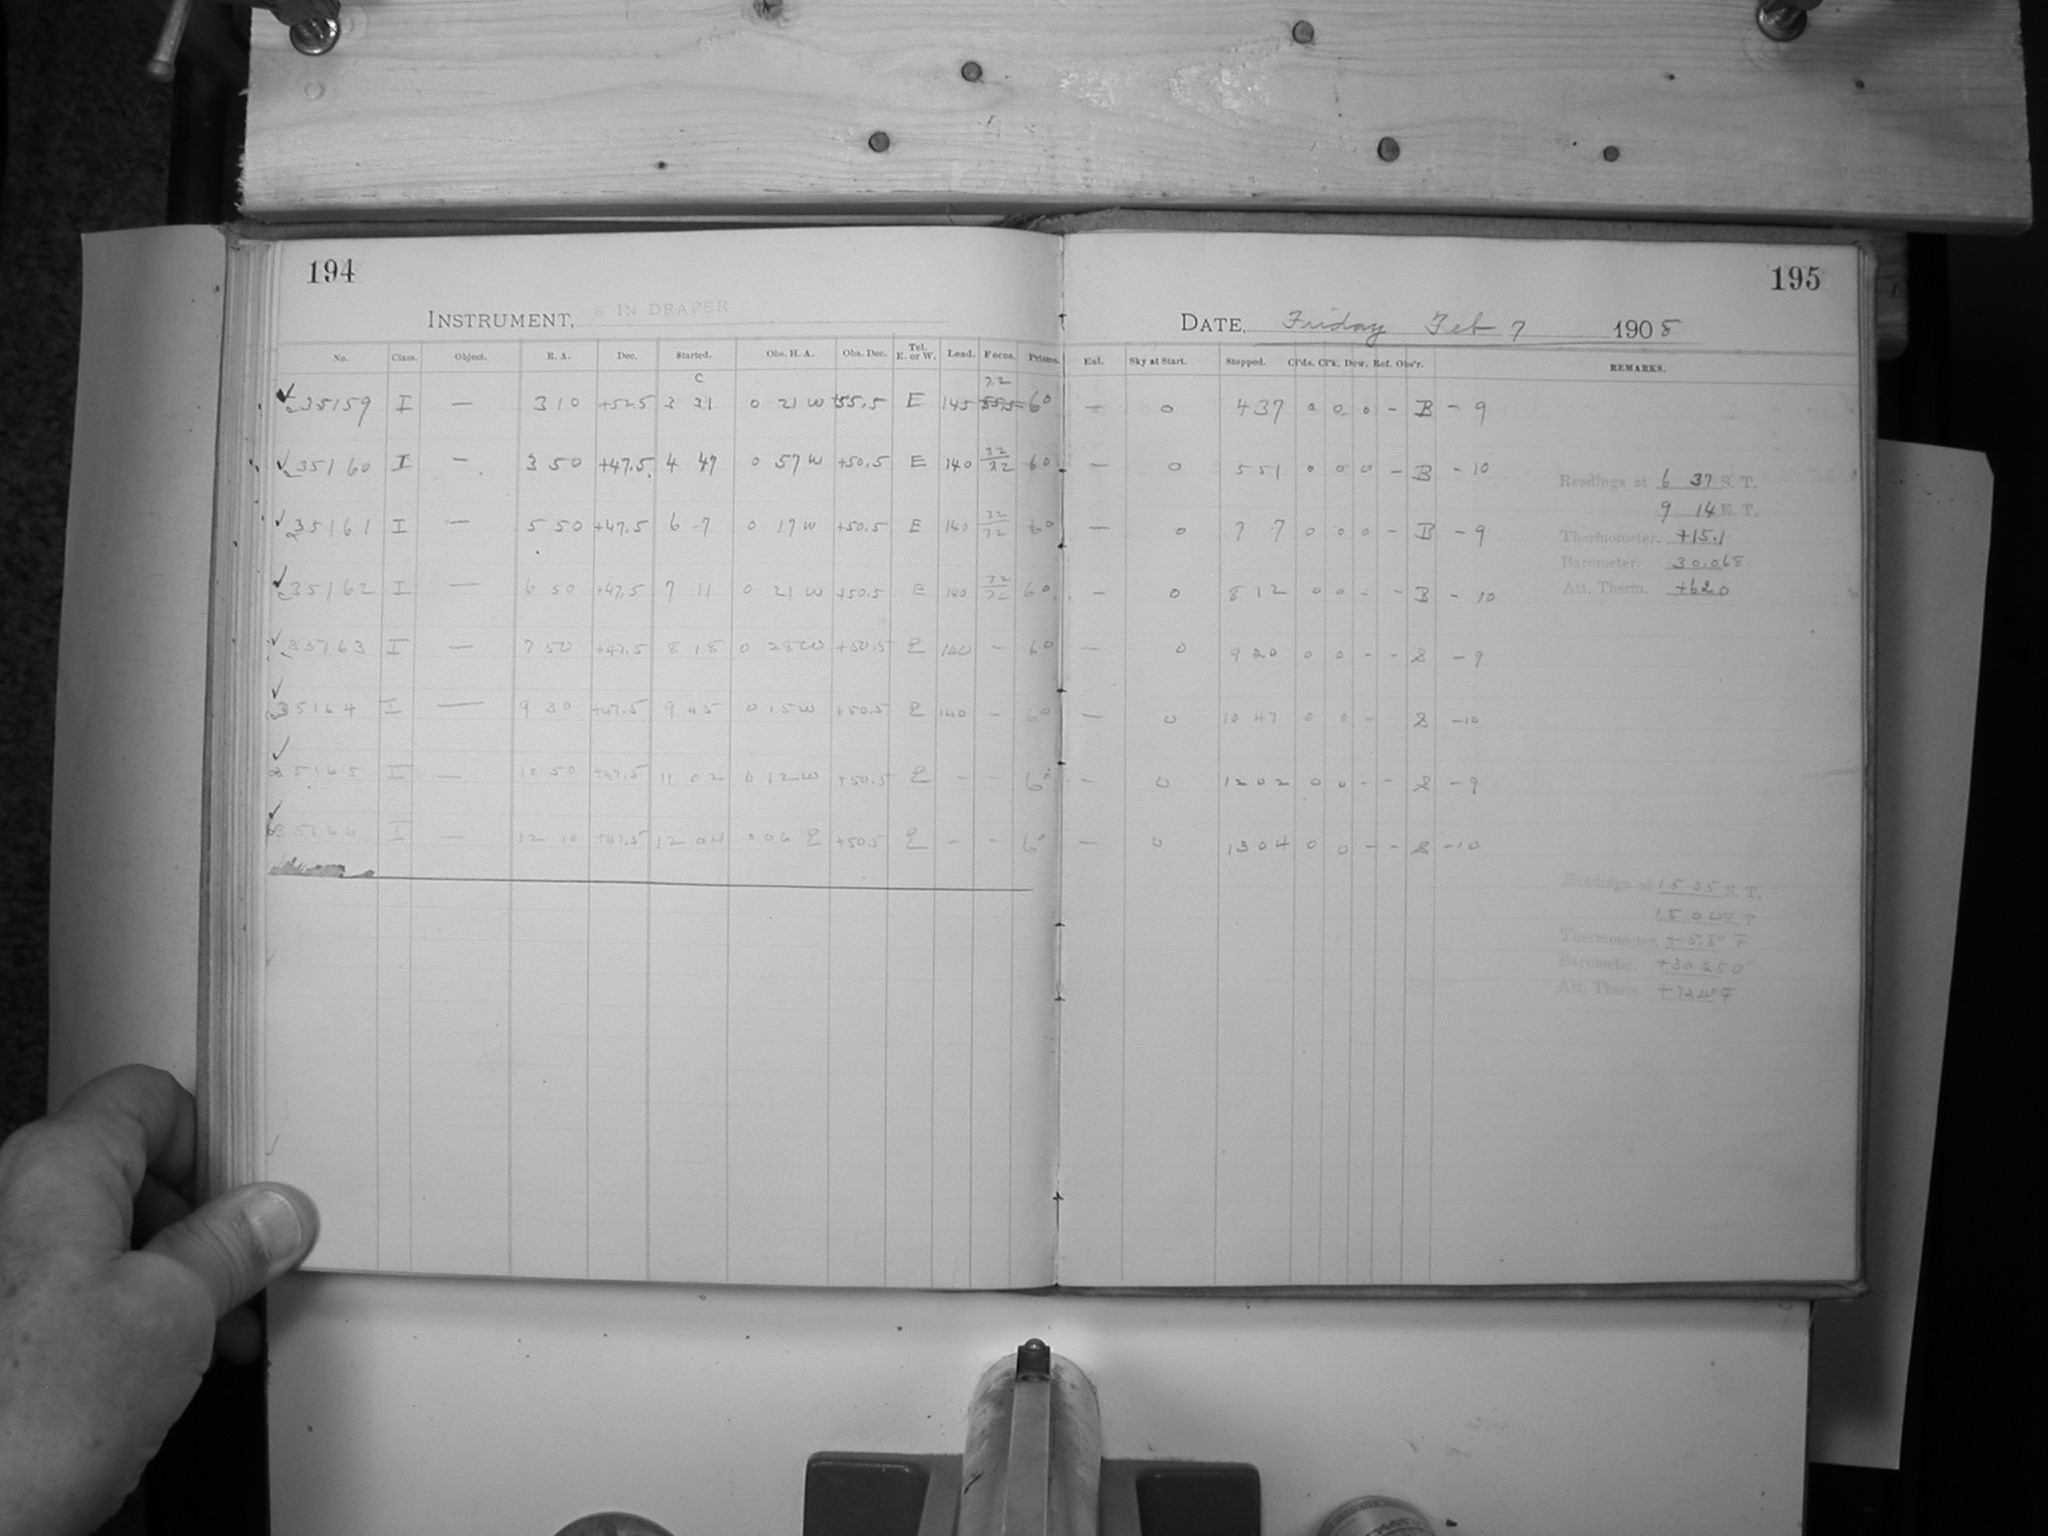 194
INSTRUMENT, 8 IN DRAPER
No. Class. Object. R. A. Dec. Started. Obs. H. A. Obs. Dec. Tel. E. or W. Load. Focus. Prisms.
✓ c35159 I — 3 10 +52.5 3 31 0 21 W +55.5 E 145 32 60
✓ c35160 I — 3 50 +47.5 4 47 0 57 W +50.5 E 140 32 32 60
✓ c35161 I — 5 50 +47.5 6 7 0 17 W +50.5 E 140 32 32 60
✓ c35162 I — 6 50 +47.5 7 11 0 21 W +50.5 E 140 32 32 60
✓ 35163 I — 7 50 +47.5 8 18 0 28 W +50.5 E 140 — 60
✓ 35164 I — 9 30 +47.5 9 45 0 15 W +50.5 E 140 — 60
✓ 35165 I — 10 50 +47.5 11 02 0 12 W +50.5 E — — 60
✓ 35166 I — 12 10 +47.5 12 04 0 06 E +50.5 E — — 60
195
DATE, Friday Feb 7 1908
Ext. Sky at Start. Stopped. Cl'ds. Cl'k. Dew. Ref. Obs'r. REMARKS.
— 0 4 37 0 0 0 - B - 9
— 0 5 51 0 0 0 - B - 10
— 0 7 7 0 0 0 - B - 9
— 0 8 12 0 0 - - B - 10
— 0 9 20 0 0 - - S - 9
— 0 10 47 0 0 - S - 10
— 0 12 02 0 0 - - S - 9
— 0 13 04 0 0 - - S - 10
Readings at 6 37 S. T.
9 14 E. T.
Thermometer. +15.1
Barometer. 30.068
Att. Therm. +62.0
Readings at 15 35 S. T.
Thermometer. +5.8° F
Barometer. +30.250
Att. Therm.